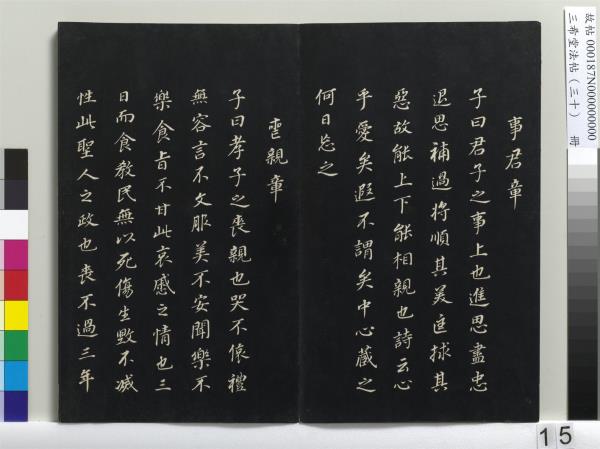 故帖 000187N000000000
三希堂法帖（三十） 冊
事君章
子曰君子之事上也進思盡忠
退思補過將順其美匡捄其
惡故能上下能相親也詩云心
乎愛矣遐不謂矣中心藏之
何日忘之
喪親章
子曰孝子之喪親也哭不偯禮
無容言不文服美不安聞樂不
樂食旨不甘此哀慼之情也三
日而食教民無以死傷生毀不滅
性此聖人之政也喪不過三年
15